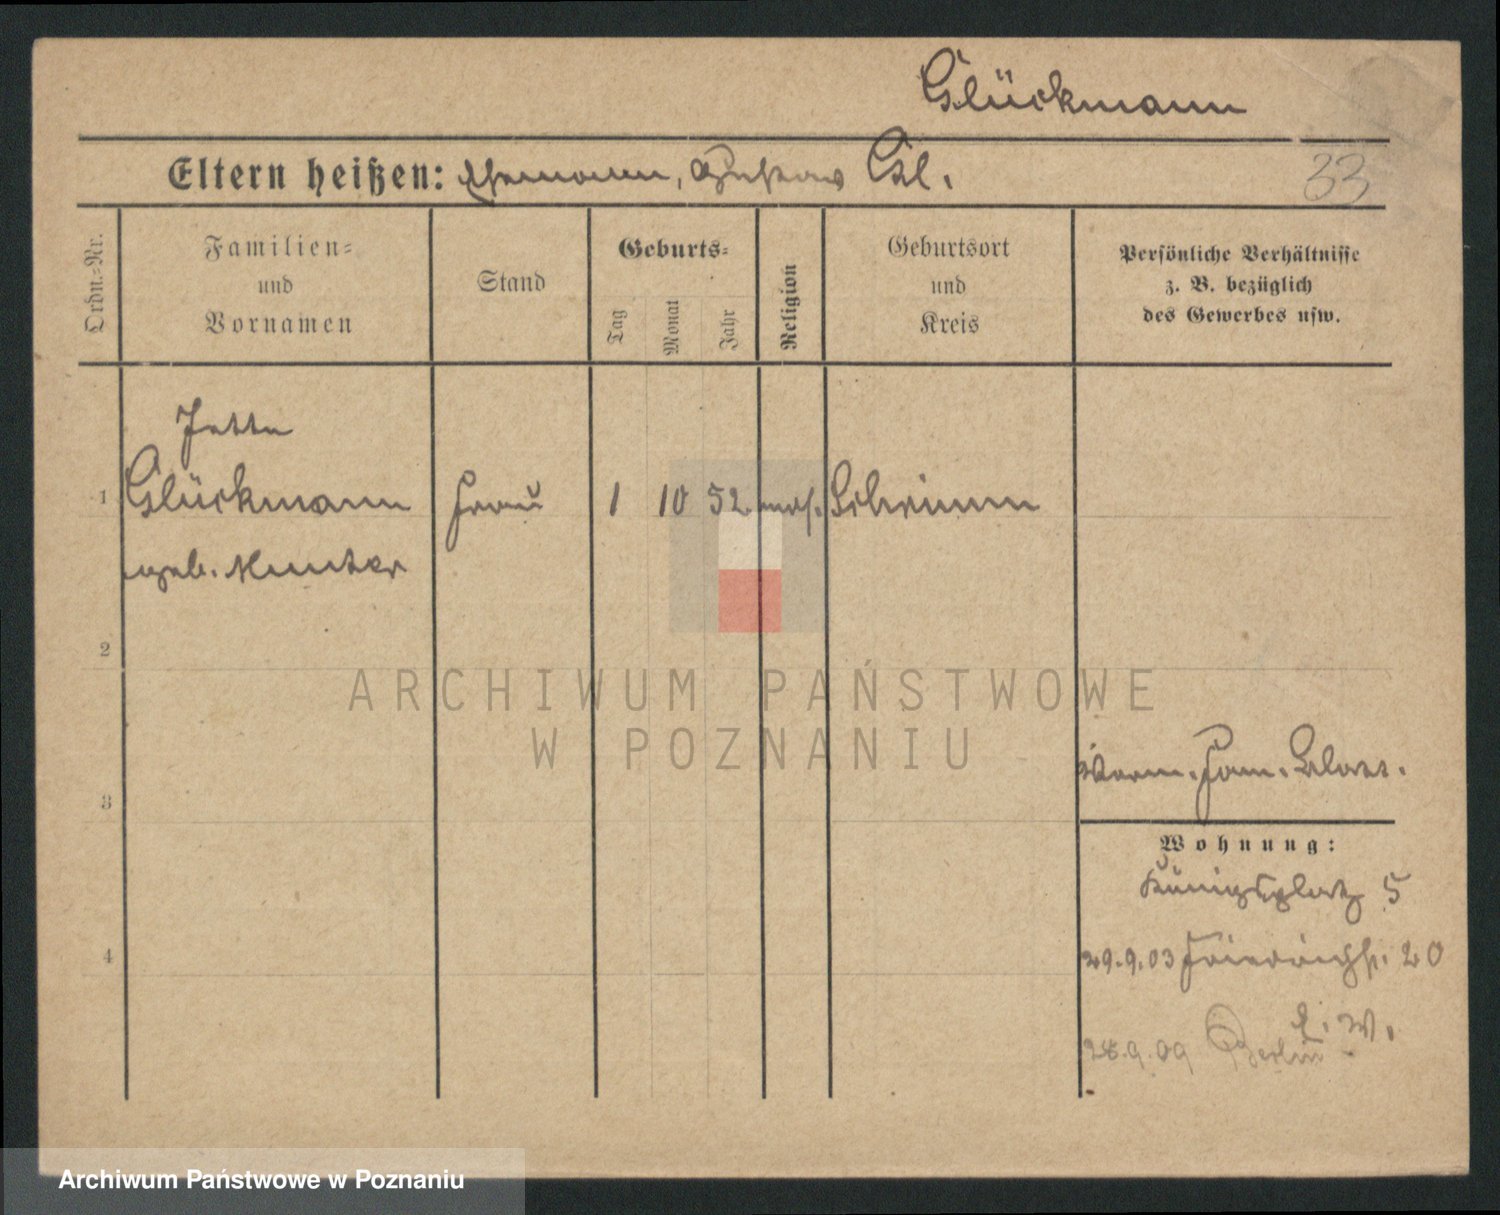 Glückmann
Eltern heißen: Ehemann, Gustav Gl.
33
Ordn.=Nr.
Familien=
und
Vornamen
Stand
Geburts=
Tag
Monat
Jahr
Religion
Geburtsort
und
Kreis
Persönliche Verhältnisse
z. B. bezüglich
des Gewerbes usw.
Jette
1 Glückmann Frau 1 10 52. mos. Schrimm
geb. Munter
2
ARCHIWUM PAŃSTWOWE
W POZNANIU
Fam. Blatt.
3
Wohnung:
Königsplatz 5
4
29.9.03 Friedrichstr. 20
l. W.
28.9.09 Berlin
Archiwum Państwowe w Poznaniu